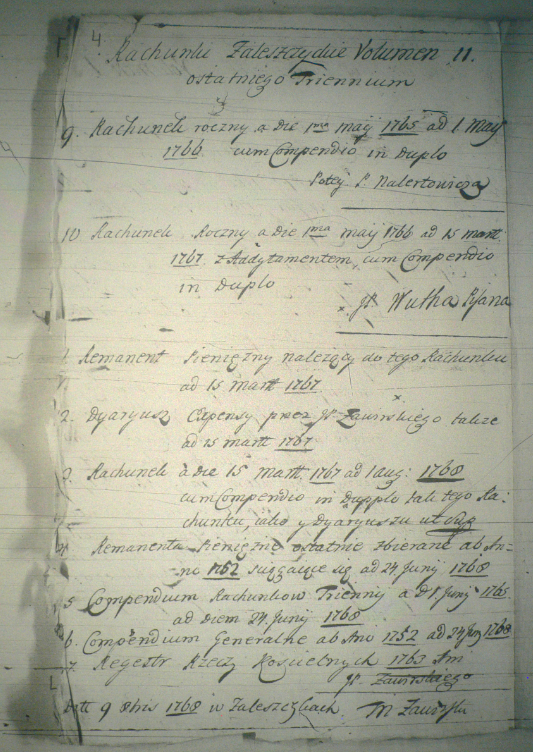 4.
Rachunki Zaleszczyckie Volumen 11.
ostatniego Triennium
9. Rachunek roczny a die 1ma maij 1765 ad 1 Maij
1766 cum Compendio in duplo
P. Nalertowicza
10 Rachunek Roczny a die 1ma maij 1766 ad 15 martt
1767 z Addytamentem cum Compendio
in duplo
JP. Wutha Pisana
1. Remanent Pieniezny nalezący do tego Rachunku
ad 15 martt 1767
2. Dyaryusz Expensy przez JP Zawirskiego takze
ad 15 martt 1767
3 Rachunek a die 15 martt 1767 ad 1 aug: 1768
cum Compendio in dupplo tak tego Ra:
chunku, iako y Dyaryuszu
4 Remanenta Pieniezne ostatnie zbierane ab An=
no 1762 sięgaiące się ad 24 Junij 1768
5 Compendium Rachunkow Trienny a d 1 Junij 1765
ad diem 24. Junij 1768
6. Compendium Generalne ab Ano 1752 ad 24 Junij 1768
7. Regestr Rzeczy Kościelnych 1763 Am
JP. Zawirskiego
9 8bris 1768 w Zaleszczykach M Zawirski